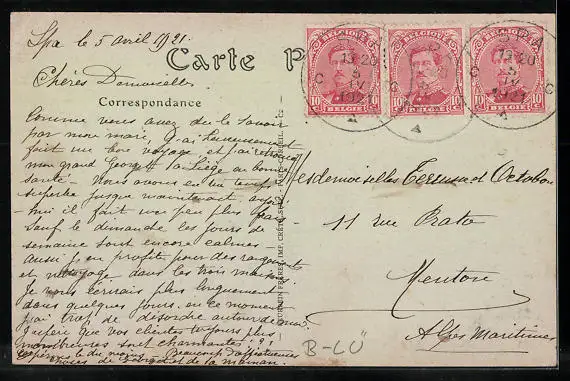 Spa le 5 Avril 1921.
Carte P
Chères Demoiselles
Correspondance
Comme vous avez dû le savoir
par mon mari, j'ai heureusement
fait un bon voyage et j'ai retrouvé
mon grand Georges à Liège en bonne
santé - Nous avons eu un temps
superbe jusque maintenant, aujourd
-hui il fait un peu plus
Sauf le dimanche les jours de
semaine sont encore calmes
aussi j'en profite pour des rangements
et nettoyage dans les trois maisons
Je vous écrirais plus longuement
dans quelques jours, en ce moment
j'ai trop de désordre autour de moi
J'espère que vos clientes toujours plus
nombreuses sont charmantes
espérons le du moins - Beaucoup d'affectueuses
choses de et de la maman.
BELGIQUE
BELGIË
10 10
BELGIQUE
BELGIË
10 10
BELGIQUE
BELGIË
10 10
SPA
13-20
5
IV
1921
Mesdemoiselles et Octobon
11 rue Prato
Menton
Alpes Maritimes
B-LÜ